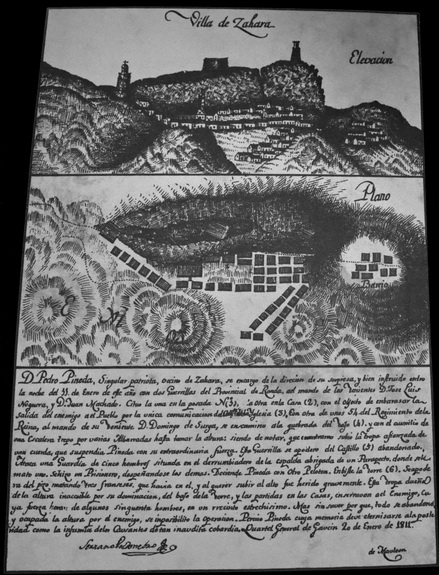 Villa de Zahara
Elevacion
Plano
Barrio
D. Pedro Pineda, Singular patriota, vecino de Zahara, se encargo de la direccion de su sorpresa, y bien instruido entro
la noche del 11 de Enero de este año con dos Guerrillas del Provincial de Ronda, al mando de los Tenientes D. Jose Luis
Noguera, y D. Juan Machado. Otra la una en la posada N(3), la otra enla Casa (2), con el objeto de embarasar la
salida del enemigo al Pueblo por la unica comunicacion de Iglesia (3). Con otra de unos 54 del Regimiento de la
Reina, al mando de su Teniente D. Domingo de se encamino ala quebrada del Tajo (4), y con el auxilio de
una Escalera trepo por varias hasta tomar la altura: siendo de notar, que
una cuerda, que suspendia Pineda con su extraordinaria fuerza. Esta Guerrilla se apodero del Castillo (5) abandonado,
Ataca una Guardia de cinco hombres situada en el derrumbadero de la espalda abrigada de un Parapeto, donde solo
mato uno, è hizo un Prisionero, despeñandose los demas. Deciende Pineda con Otro Peloton. Embiste la Torre (6). Se apode
ra del piso matando tres franceses, que havia en el, y al querer subir al alto fue herido gravemente. Esta tropa
de la altura inacesible por su dominacion, del bajo de la Torre, y las partidas en las Casas, encierran al Enemigo, cu
ya fuerza era de algunos cinquenta hombres, en un recinto estrechisimo. Mas sin saver por que, todo se abandona,
y ocupada la altura por el enemigo, se imposibilito la operacion. Perece Pineda cuya memoria deve eternisarse ala poste
ridad como la infamia delos Causantes de tan inaudita cobardia. Quartel General de Gausin 20 de Enero de 1811.
de Mauleon